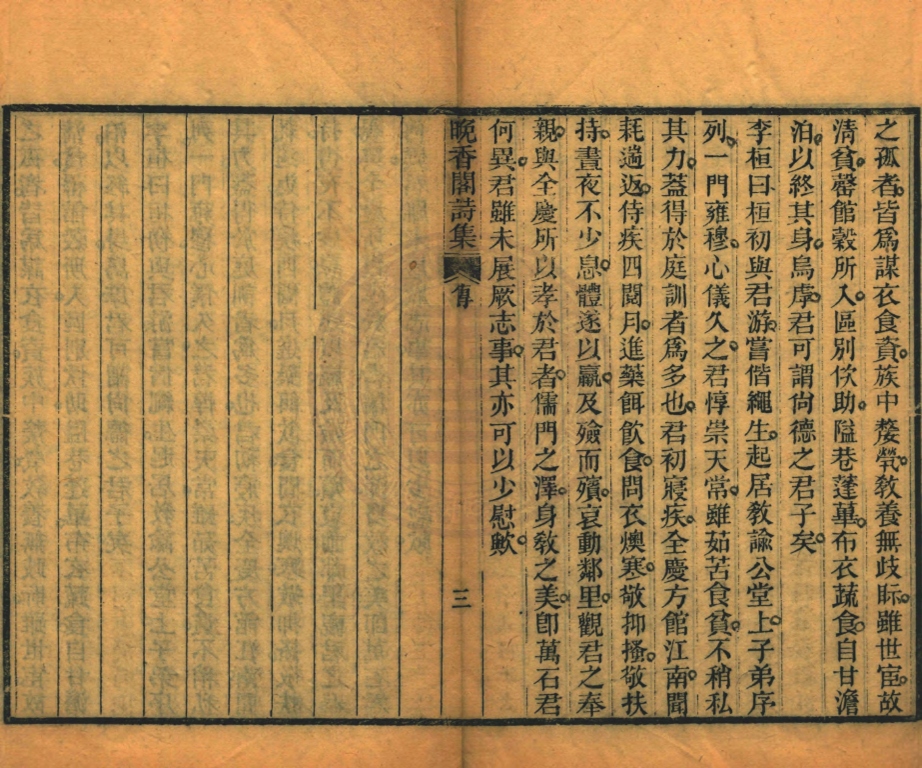 之孤者。皆爲謀衣食資。族中嫠煢。敎養無歧眎。雖世宦。故
淸貧。罄館穀所入。區別佽助。隘巷蓬蓽。布衣蔬食。自甘澹
泊。以終其身。烏虖。君可謂尙德之君子矣。
李桓曰桓初與君游。嘗偕繩生。起居敎諭公堂上。子弟序
列。一門雍穆。心儀久之。君惇崇天常。雖茹苦食貧。不稍私
其力。蓋得於庭訓者爲多也。君初寢疾。全慶方館江南。聞
耗遄返。侍疾四閱月。進藥餌飮食。問衣燠寒。敬抑搔。敬扶
持。晝夜不少息。體遂以羸。及殮而殯。哀動鄰里。觀君之奉
親。與全慶所以孝於君者。儒門之澤。身敎之美。卽萬石君
何異。君雖未展厥志事。其亦可以少慰歟。
晚香閣詩集 傳 三